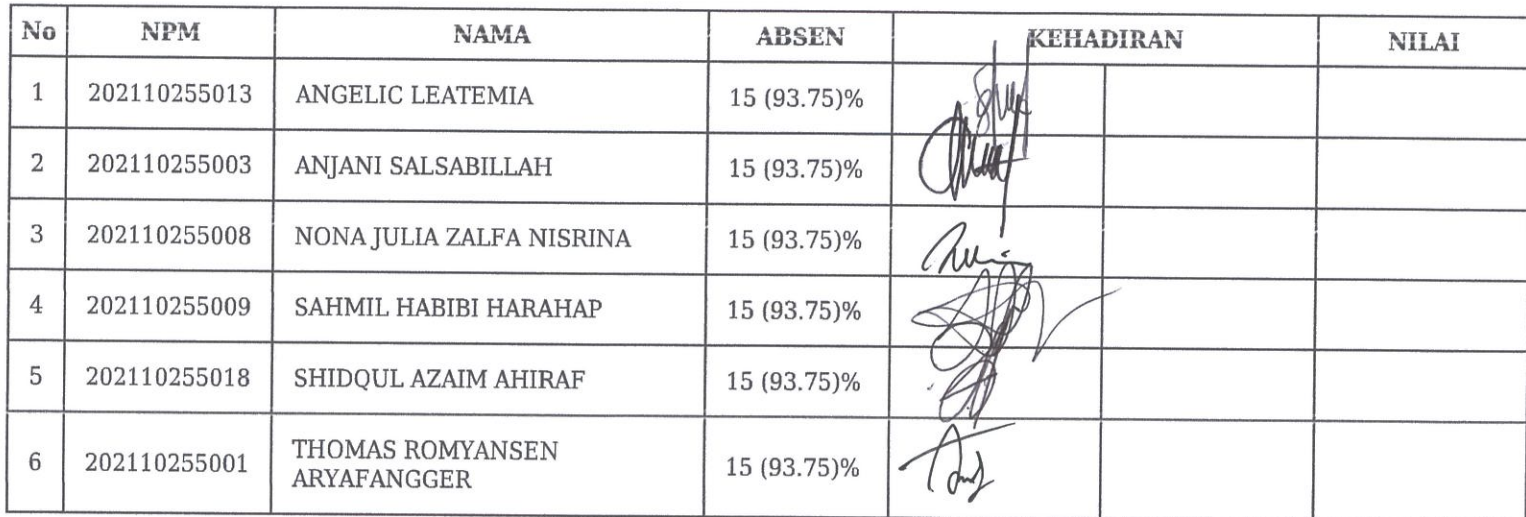 No NPM NAMA ABSEN KEHADIRAN NILAI
1 202110255013 ANGELIC LEATEMIA 15 (93.75)%
2 202110255003 ANJANI SALSABILLAH 15 (93.75)%
3 202110255008 NONA JULIA ZALFA NISRINA 15 (93.75)%
4 202110255009 SAHMIL HABIBI HARAHAP 15 (93.75)%
5 202110255018 SHIDQUL AZAIM AHIRAF 15 (93.75)%
6 202110255001 THOMAS ROMYANSEN 15 (93.75)%
ARYAFANGGER